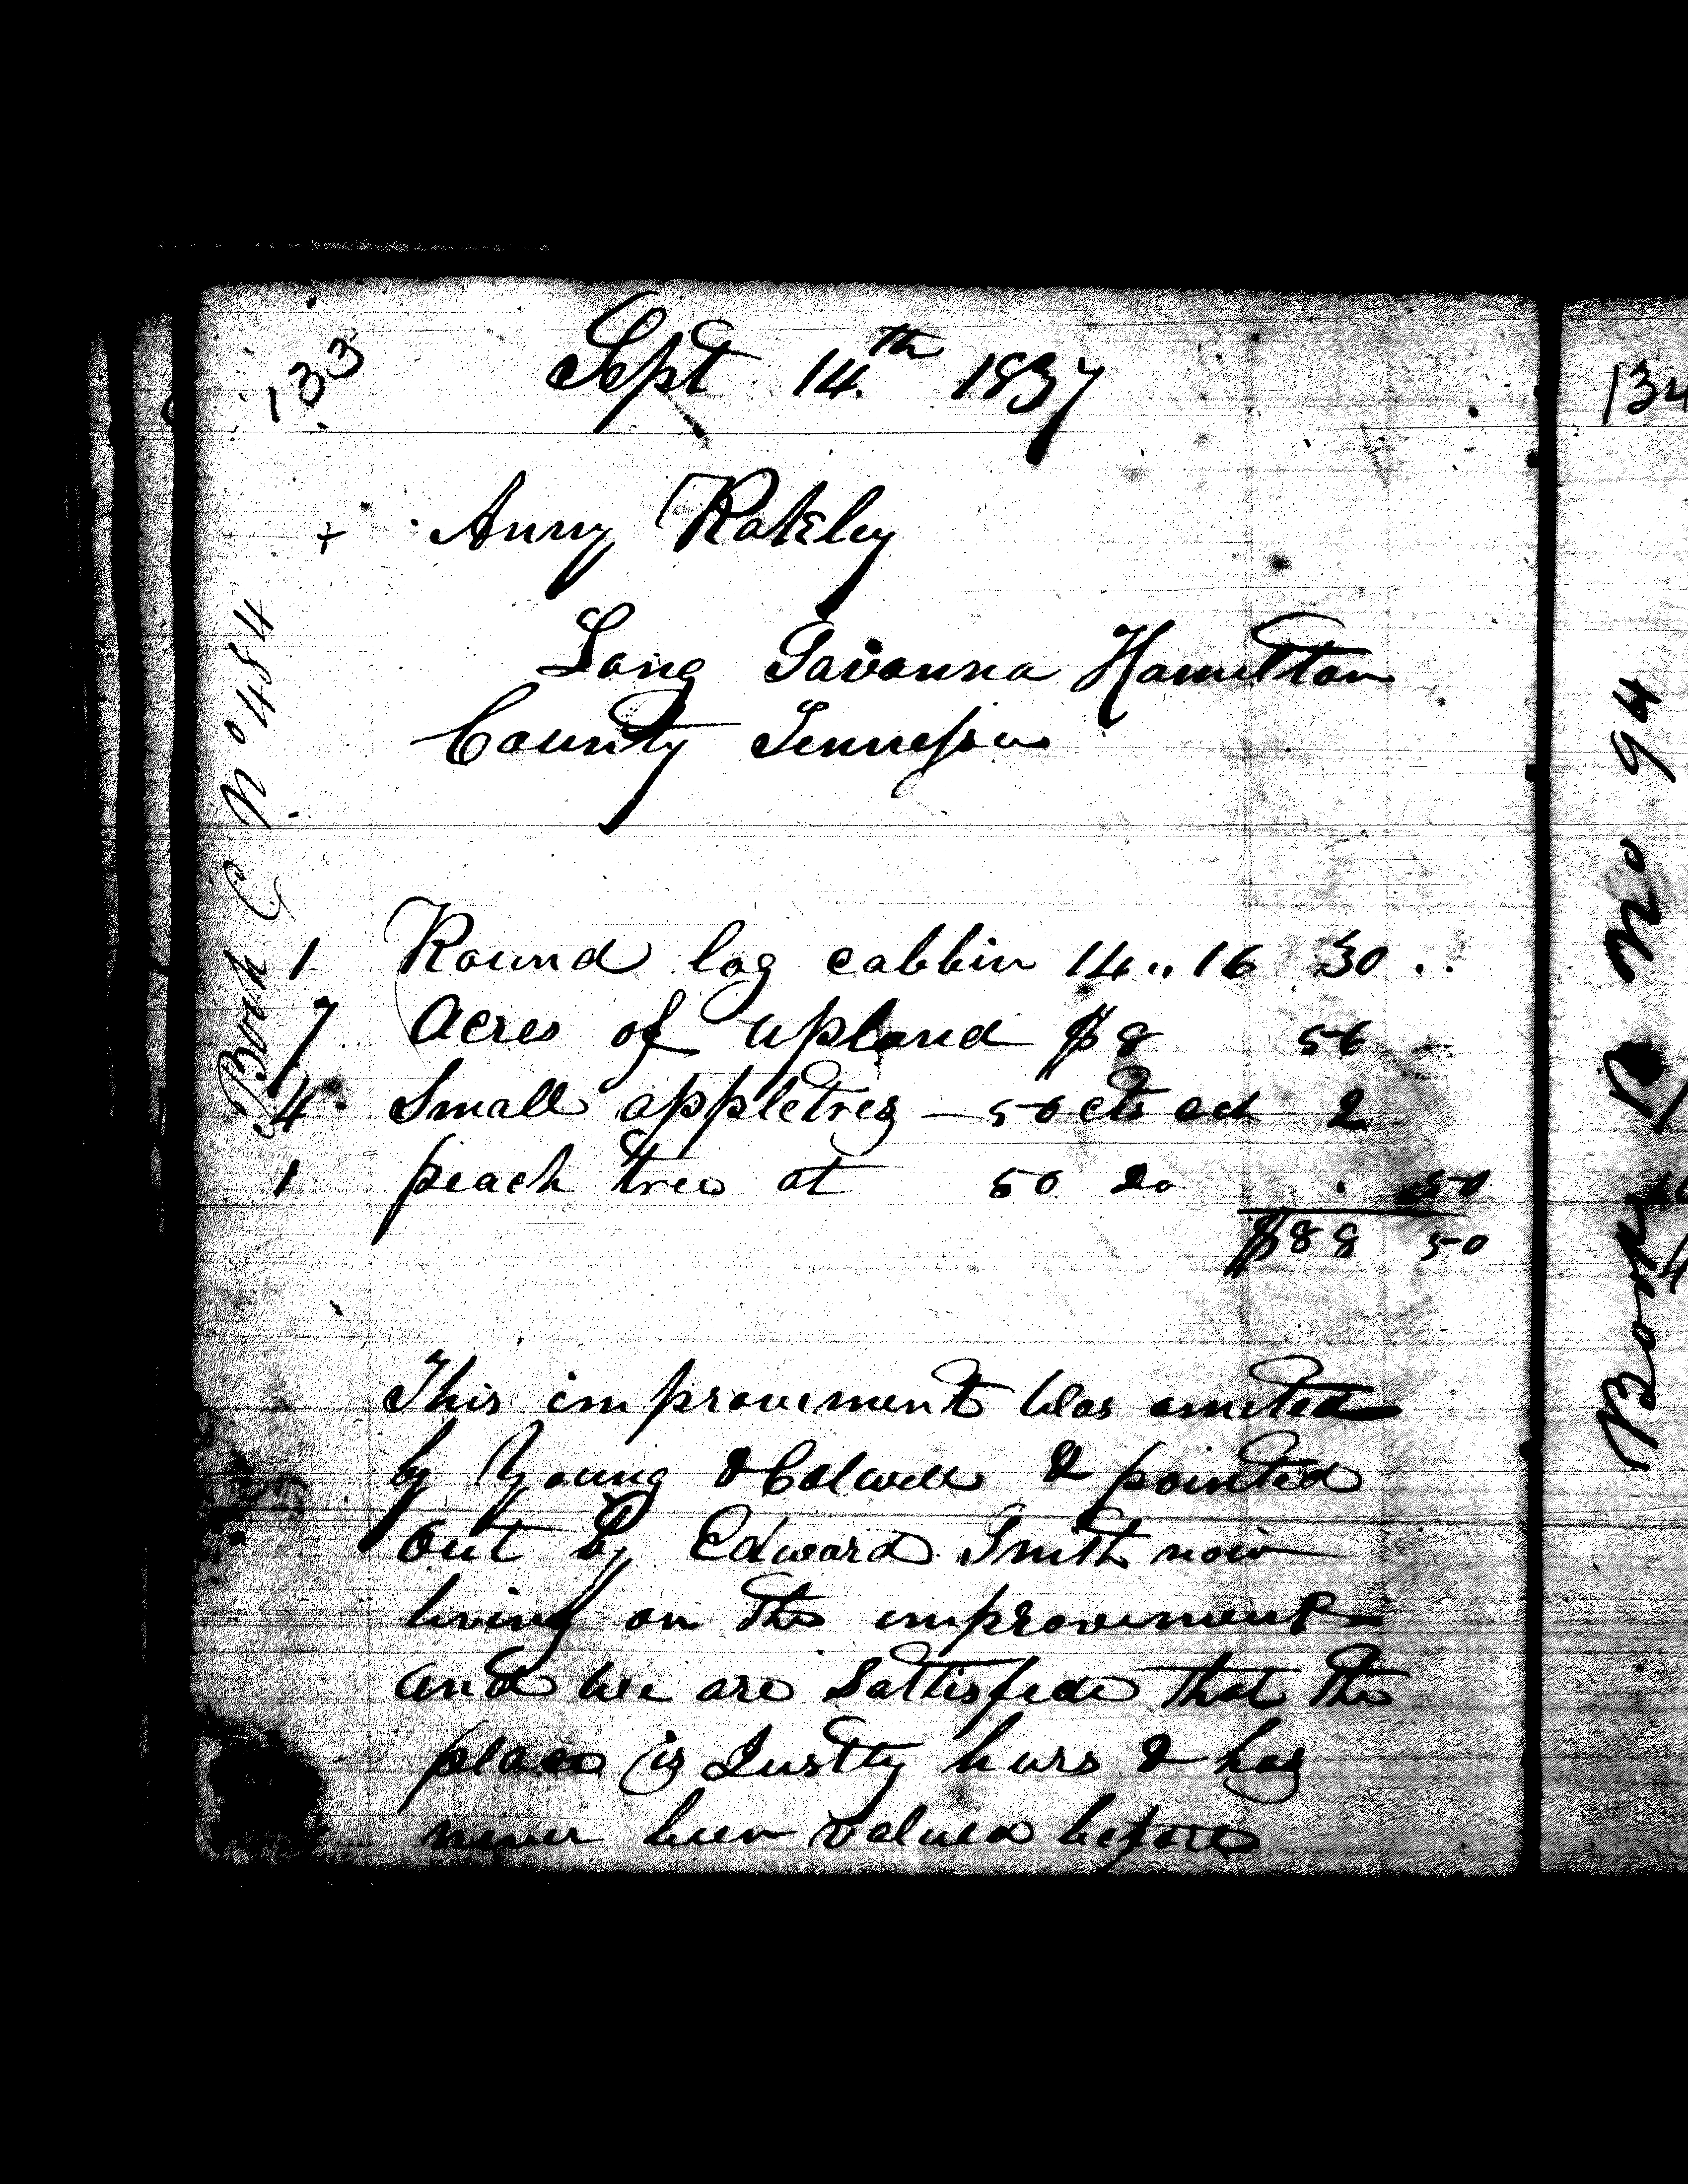 133
Sept 14th 1837
+ Anny Ratley
Long Savanna Hamilton
County Tennessee
Book C No 484
1 Round log cabbin 14 .. 16 30 ..
7 Acres of upland $8 56 ..
4 Small appletres — 50 cts ach 2
1 peach tree at 50 Do . 50
$88 50
This improvement was omited
by Young & Colwell & pointed
out by Edward Smith now
living on the improvement
and we are Sattisfide that the
place is Justly hurs & has
never been valued before
134
Book No 94